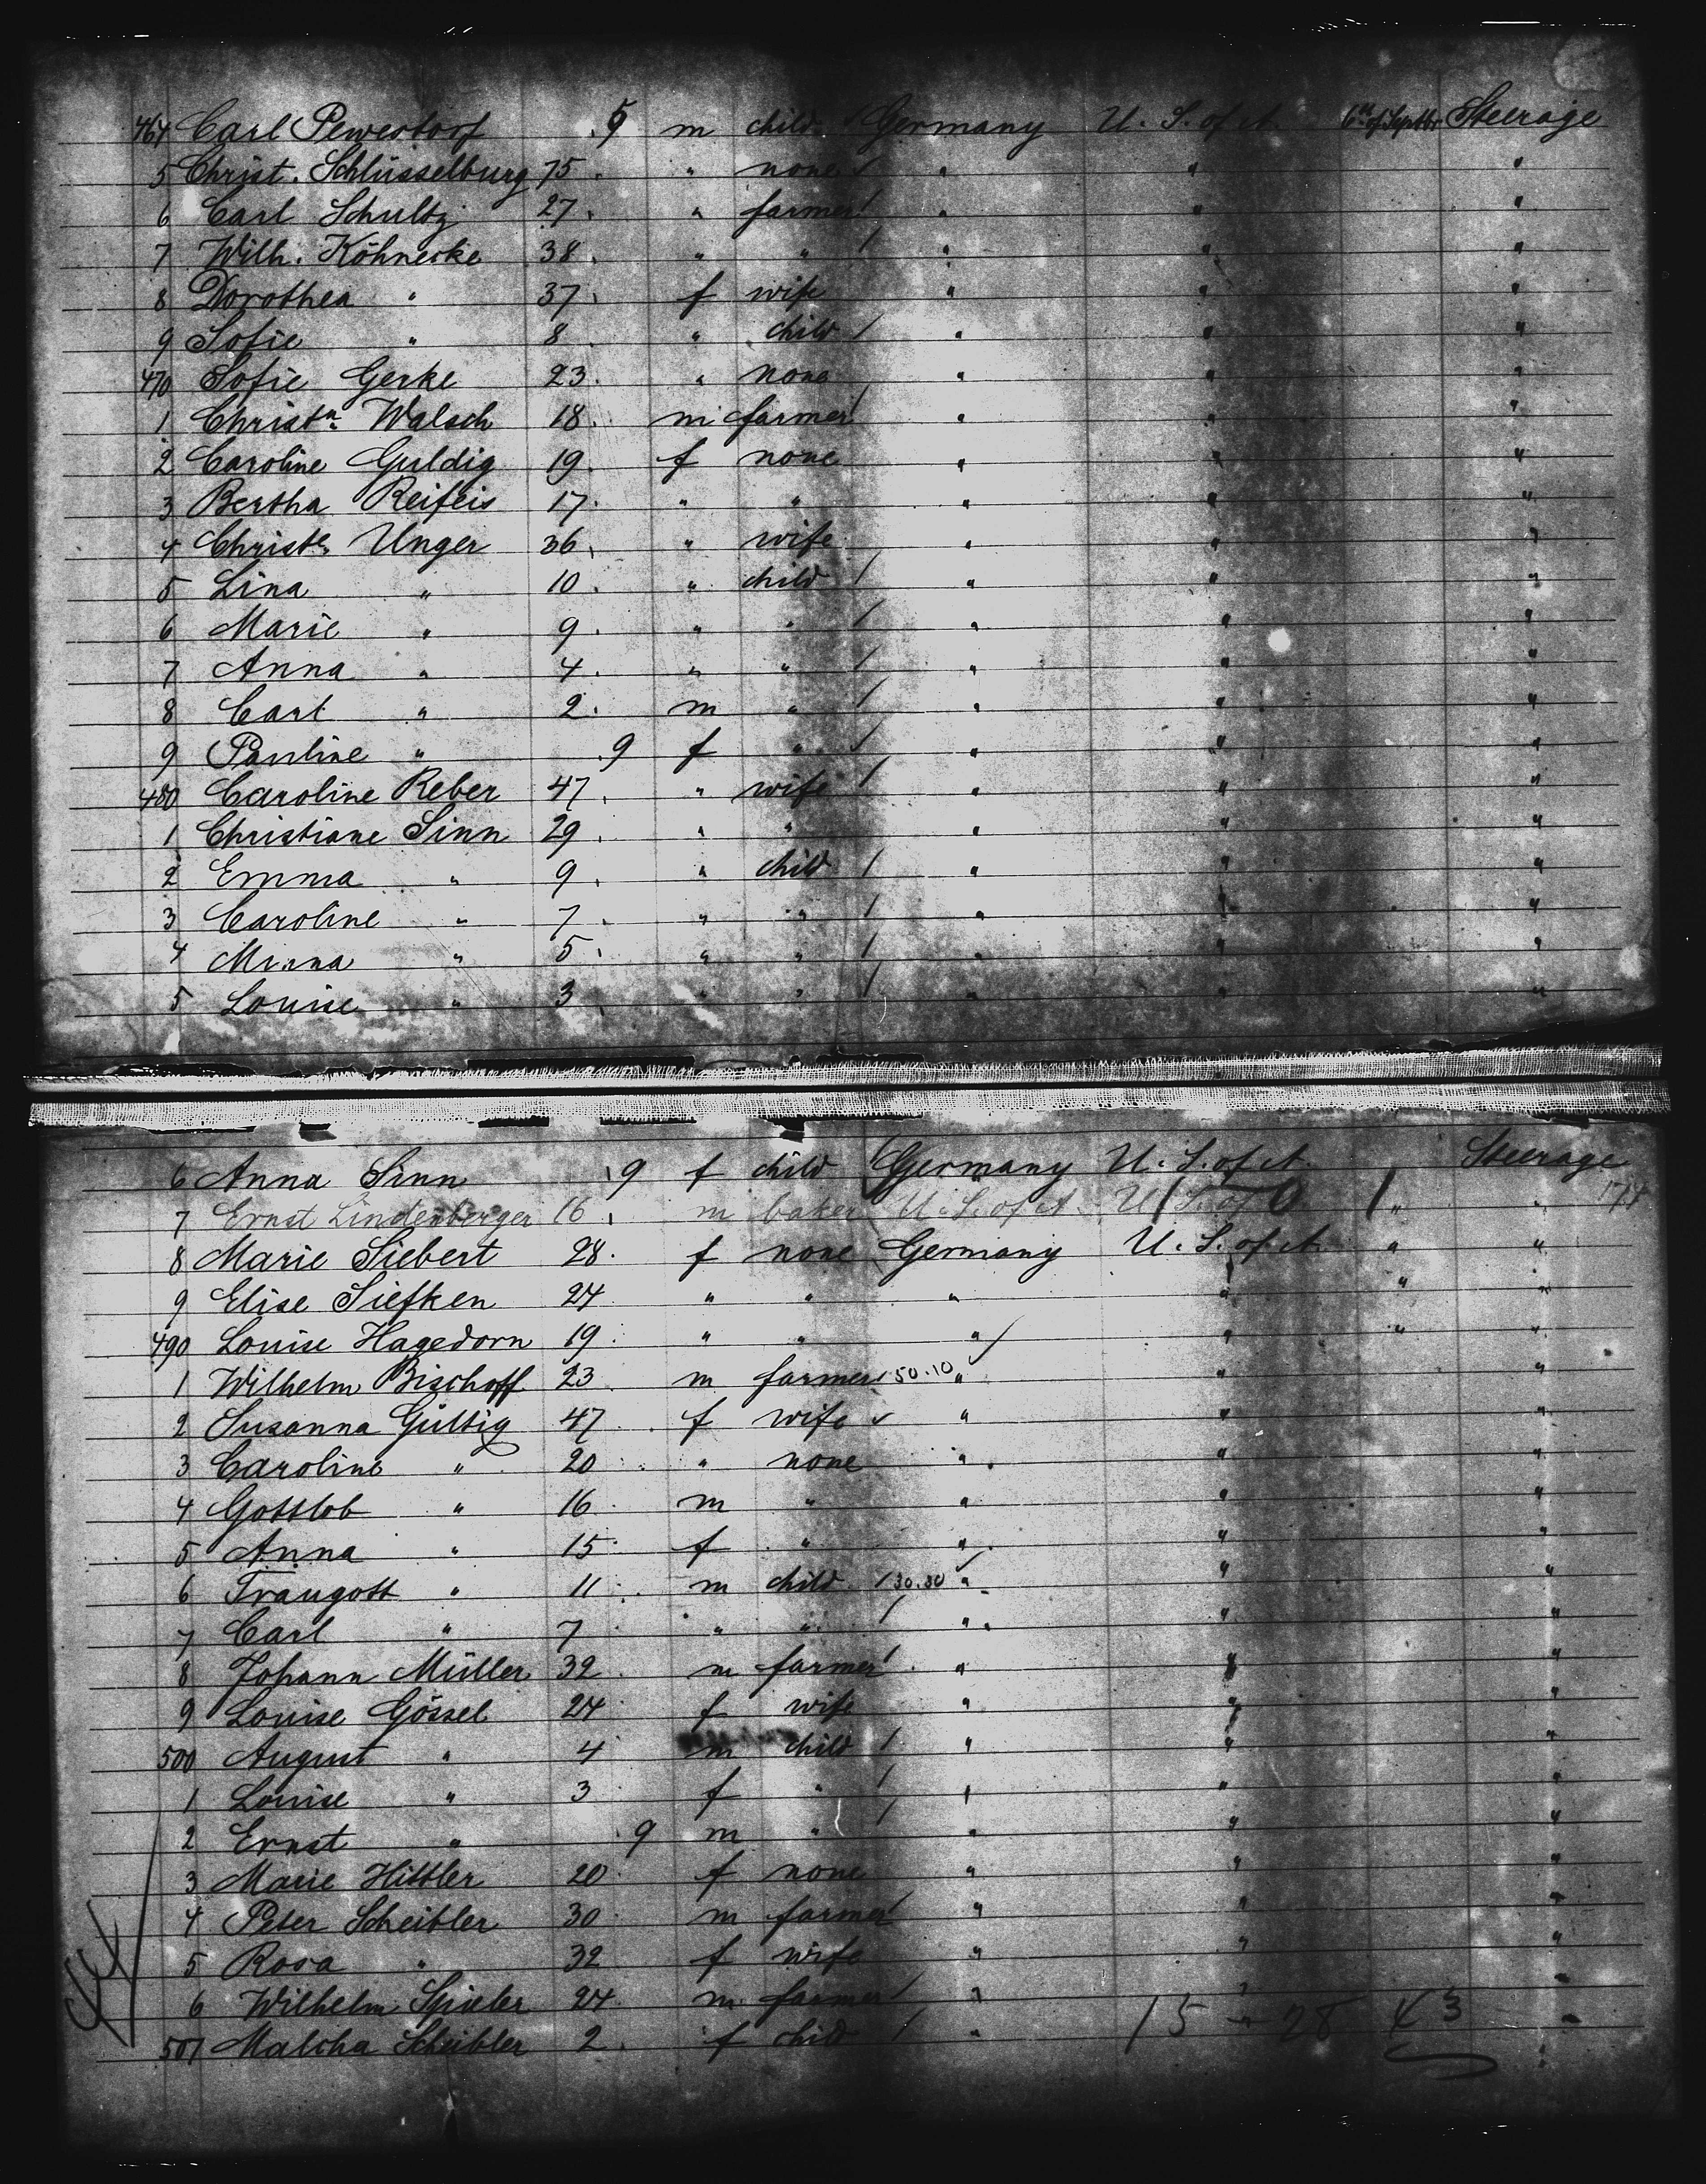 464 Carl Pewestorf 5 m child Germany U. S. of A. 6th of Septbr Steerage
5 Christ. Schlüsselburg 75 " none " " "
6 Carl Schultz 27 " farmer " " "
7 Wilh. Köhnecke 38 " " " " "
8 Dorothea " 37 f wife " " "
9 Sofie " 8 " child " " "
470 Sofie Gerke 23 " none " " "
1 Christn Walsch 18 m farmer " " "
2 Caroline Guldig 19 f none " " "
3 Bertha Reifeis 17 " " " " "
4 Christe Unger 36 " wife " " "
5 Lina " 10 " child " " "
6 Marie " 9 " " " " "
7 Anna " 4 " " " " "
8 Carl " 2 m " " " "
9 Pauline " 9 f " " " "
480 Caroline Reber 47 " wife " " "
1 Christiane Sinn 29 " " " " "
2 Emma " 9 " child " " "
3 Caroline " 7 " " " " "
4 Minna " 5 " " " " "
5 Louise " 3 " " " " "
6 Anna Sinn 9 f child Germany U. S. of A. Steerage
7 Ernst Lindenberger 16 m baker U. S. of A. U. S. of " " 174
8 Marie Siebert 28 f none Germany U. S. of A. " "
9 Elise Siefken 24 " " " " " "
490 Louise Hagedorn 19 " " " " " "
1 Wilhelm Bischoff 23 m farmer 50.10 " " "
2 Susanna Gültig 47 f wife " " "
3 Caroline " 20 " none " " "
4 Gottlob " 16 m " " " "
5 Anna " 15 f " " " "
6 Traugott " 11 m child 30.30 " " "
7 Carl " 7 " " " " "
8 Johann Müller 32 m farmer " " "
9 Louise Gössel 24 f wife " " "
500 August " 4 m child " " "
1 Louise " 3 f " " " "
2 Ernst " 9 m " " " "
3 Marie Hittler 20 f none " " "
4 Peter Scheibler 30 m farmer " " "
5 Rosa " 32 f wife " " "
6 Wilhelm Spieler 24 m farmer " " "
507 Malcha Scheibler 2 f child " 15 - 28 43 "